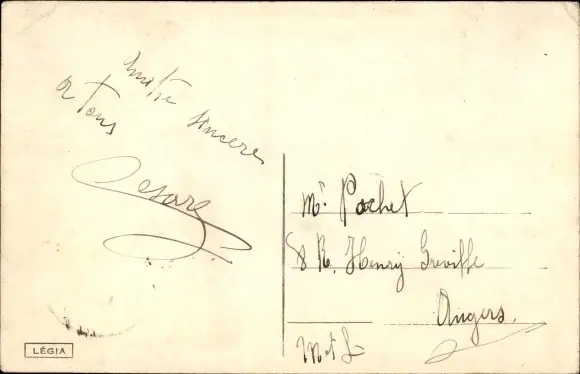 Amitié sincère
à Tous
Cesare
LÉGIA
Mr. Pochet
8 R. Henry Greviffe
Angers.
M & L